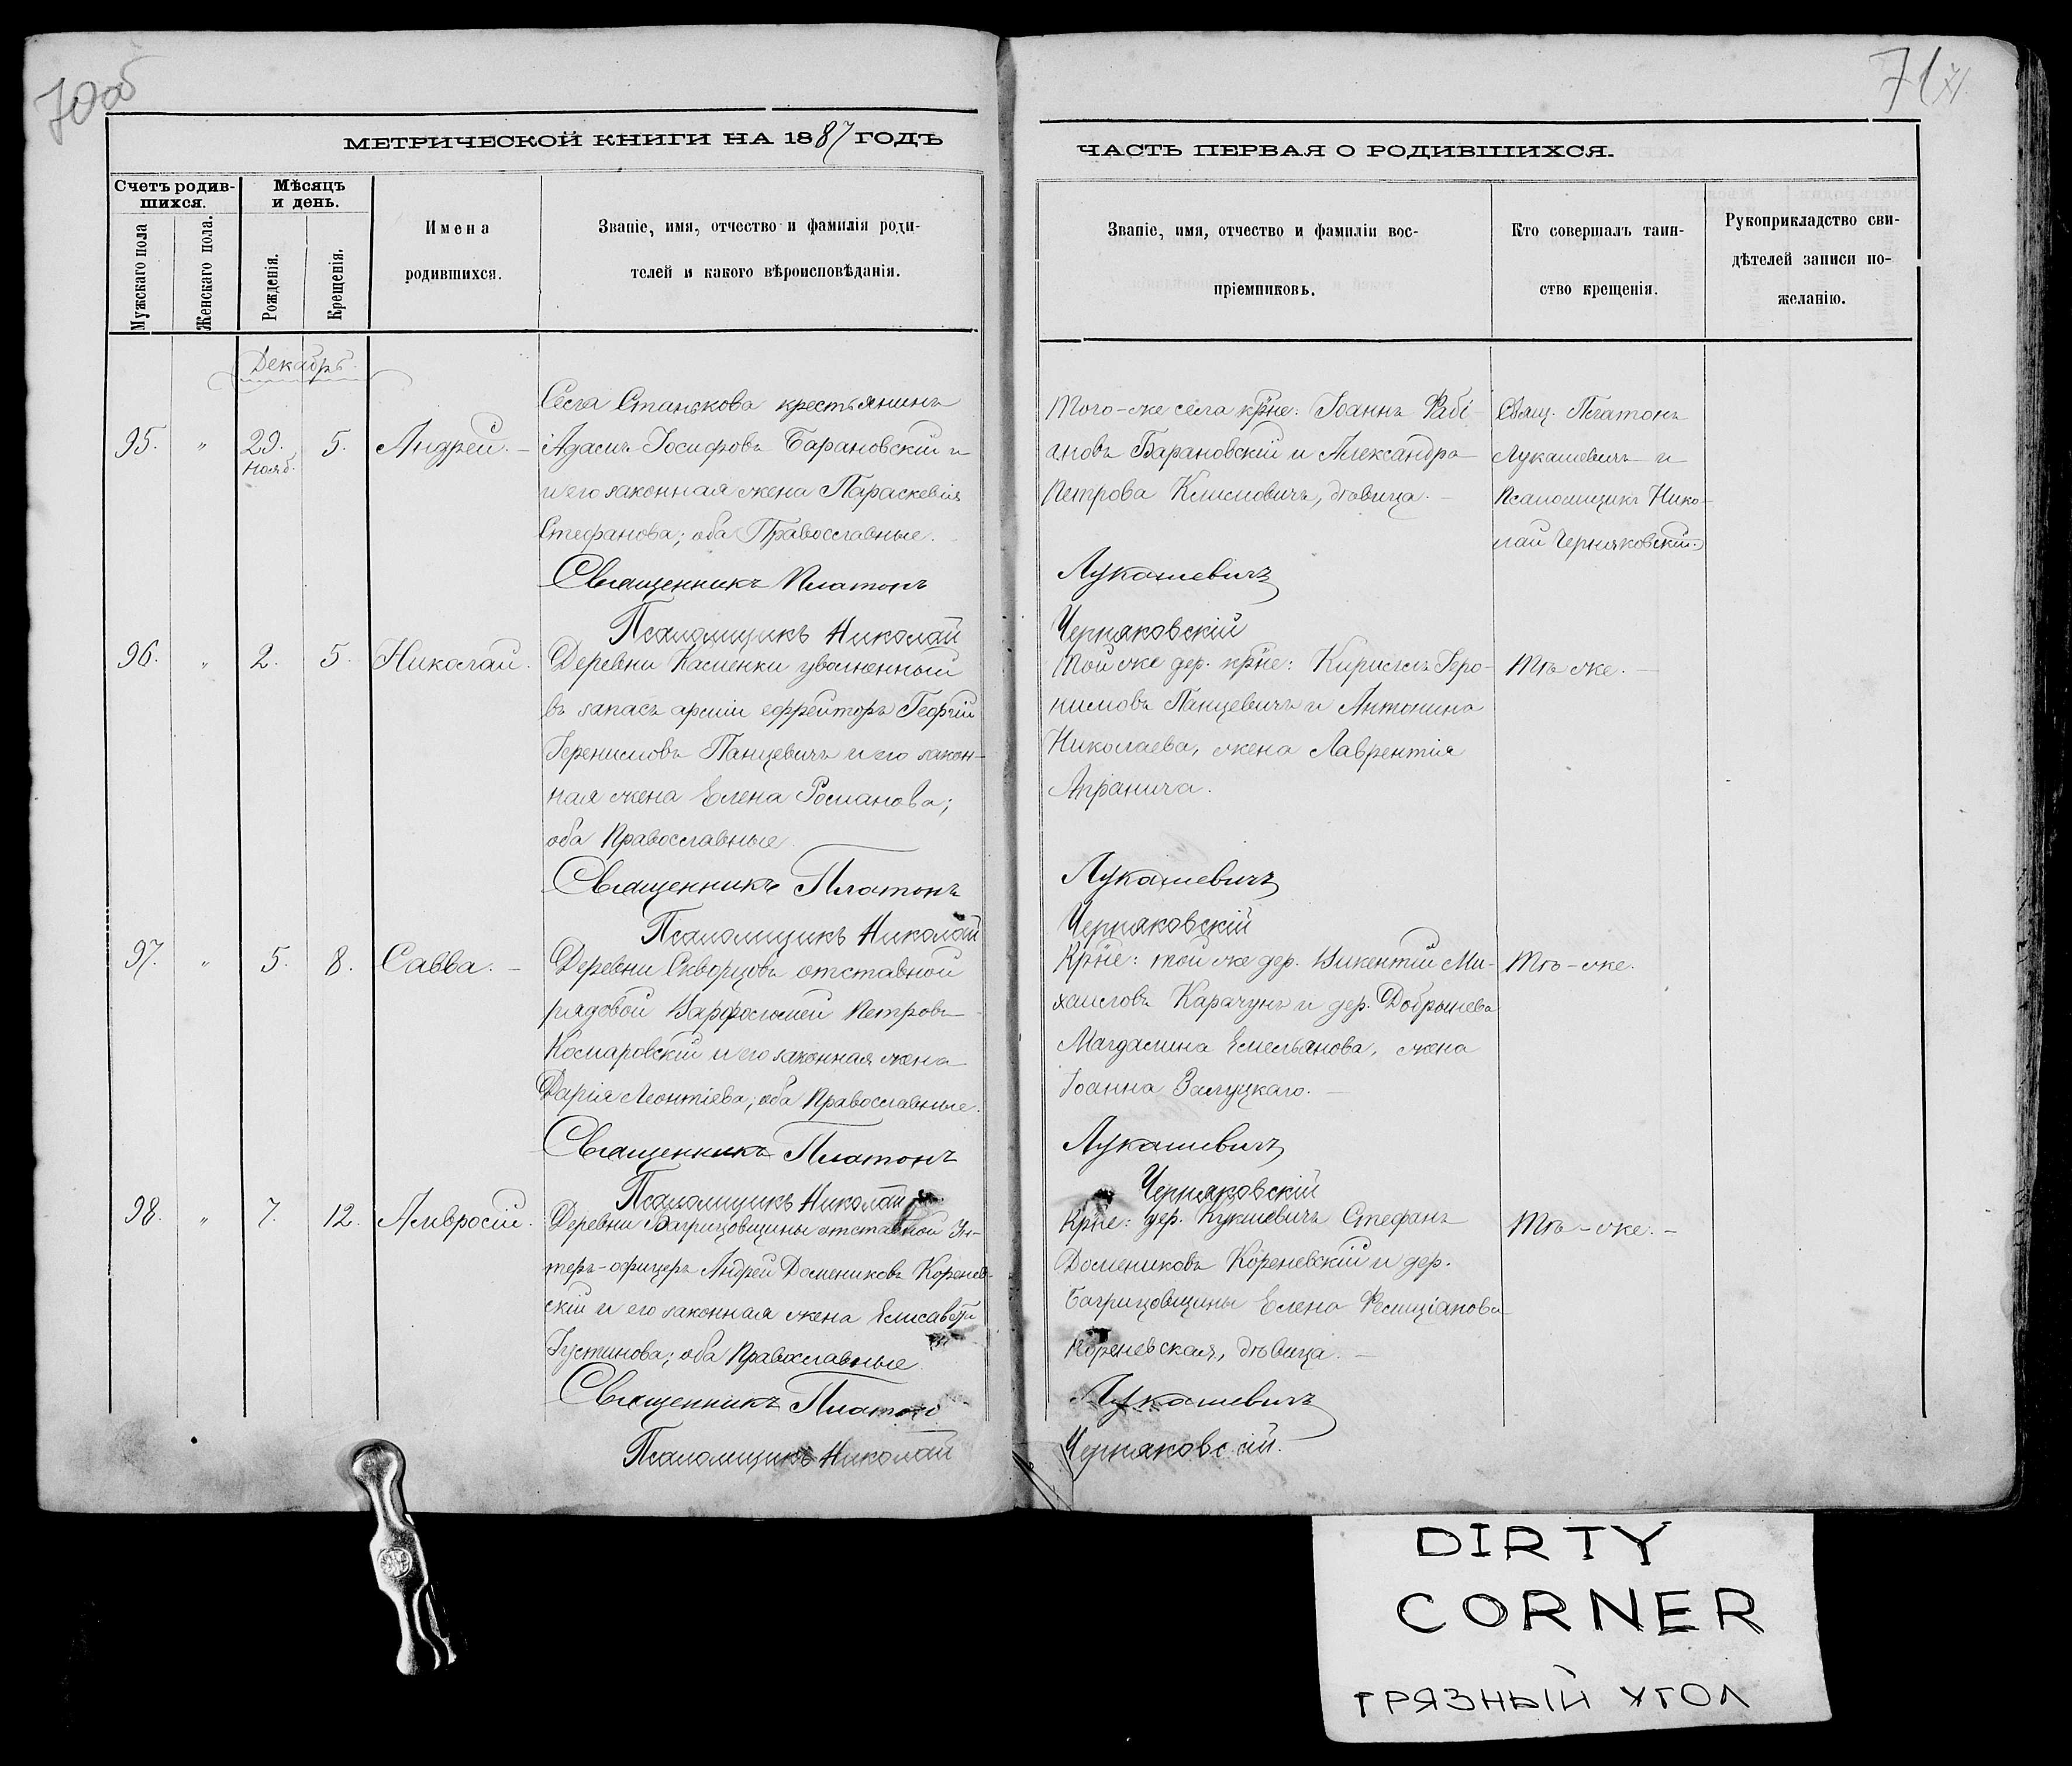 70об
71
71
МЕТРИЧЕСКОЙ КНИГИ НА 1887 ГОДЪ
ЧАСТЬ ПЕРВАЯ О РОДИВШИХСЯ.
Счетъ родив-
шихся.
Мужскаго пола
Женскаго пола.
Мѣсяцъ
и день.
Рожденія.
Крещенія.
Имена
родившихся.
Званіе, имя, отчество и фамилія роди-
телей и какого вѣроисповѣданія.
Званіе, имя, отчество и фамиліи вос-
пріемниковъ.
Кто совершалъ таин-
ство крещенія.
Рукоприкладство сви-
дѣтелей записи по-
желанію.
Декабрь.
95. " 29. Нояб. 5. Андрей. –
Села Станькова крестьянинъ
Адамъ Іосифовъ Барановскій и
и его законная жена Параскевія
Стефанова; оба Православные.
Священникъ Платонъ
Псаломщикъ Николай
Того-же села крне: Іоаннъ Фабі-
ановъ Барановскій и Александра
Петрова Климовичъ, дѣвица. –
Лукашевичъ
Черняковскій
Свящ. Платонъ
Лукашевичъ и
Псаломщикъ Нико-
лай Черняковскій.
96. " 2. 5. Николай.
Деревни Каменки уволенный
въ запасъ арміи ефрейторъ Георгій
Іеронимовъ Панцевичъ и его закон-
ная жена Елена Романова;
оба Православные.
Священникъ Платонъ
Псаломщикъ Николай
Той же дер. крне: Кириллъ Іеро-
нимовъ Панцевичъ и Антонина
Николаева, жена Лаврентія
Лукашевичъ
Черняковскій
Тѣ же. –
97. " 5. 8. Савва. –
Деревни Скворцовъ отставной
рядовой Варфоломей Петровъ
Комаровскій и его законная жена
Дарія Леонтіева; оба Православные.
Священникъ Платонъ
Псаломщикъ Николай
Крне: той же дер. Викентій Ми-
хаиловъ Карачунъ и дер. Добринева
Магдалина Емельянова, жена
Іоанна Залуцкаго. –
Лукашевичъ
Черняковскій
Тѣ-же.
98. " 7. 12. Амвросій.
Деревни Багрицовщины отставной Ун-
теръ-офицеръ Андрей Домениковъ Коренев-
скій и его законная жена Елисавета
Іустинова; оба Православные.
Священникъ Платонъ
Псаломщикъ Николай
Крне: дер. Кукшевичъ Стефанъ
Домениковъ Кореневскій и дер.
Багрицовщины Елена Фелиціанова
Кореневская, дѣвица. –
Лукашевичъ
Черняковскій.
Тѣ-же. –
DIRTY
CORNER
ГРЯЗНЫЙ УГОЛ